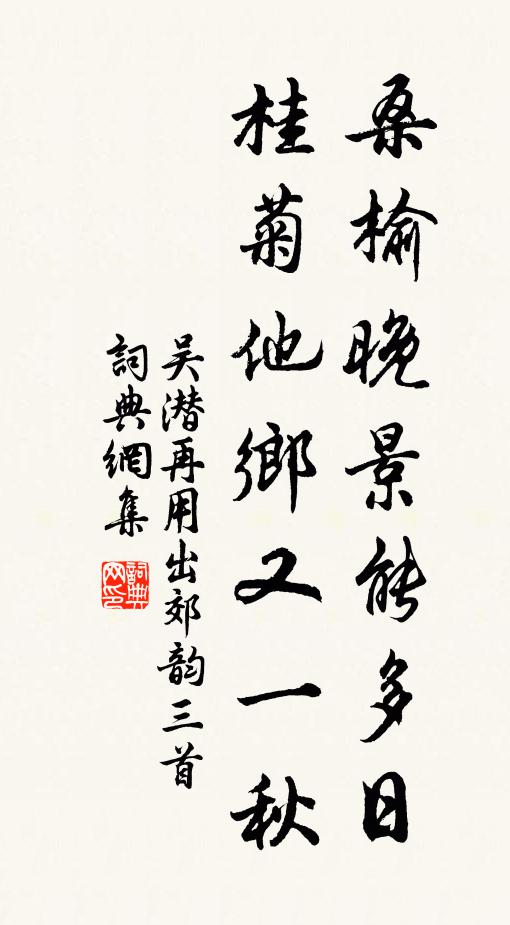 桑榆晚景能多日
桂菊他鄉又一秋
吴潜再用出郊韵三首
詞典網集
詞典网印